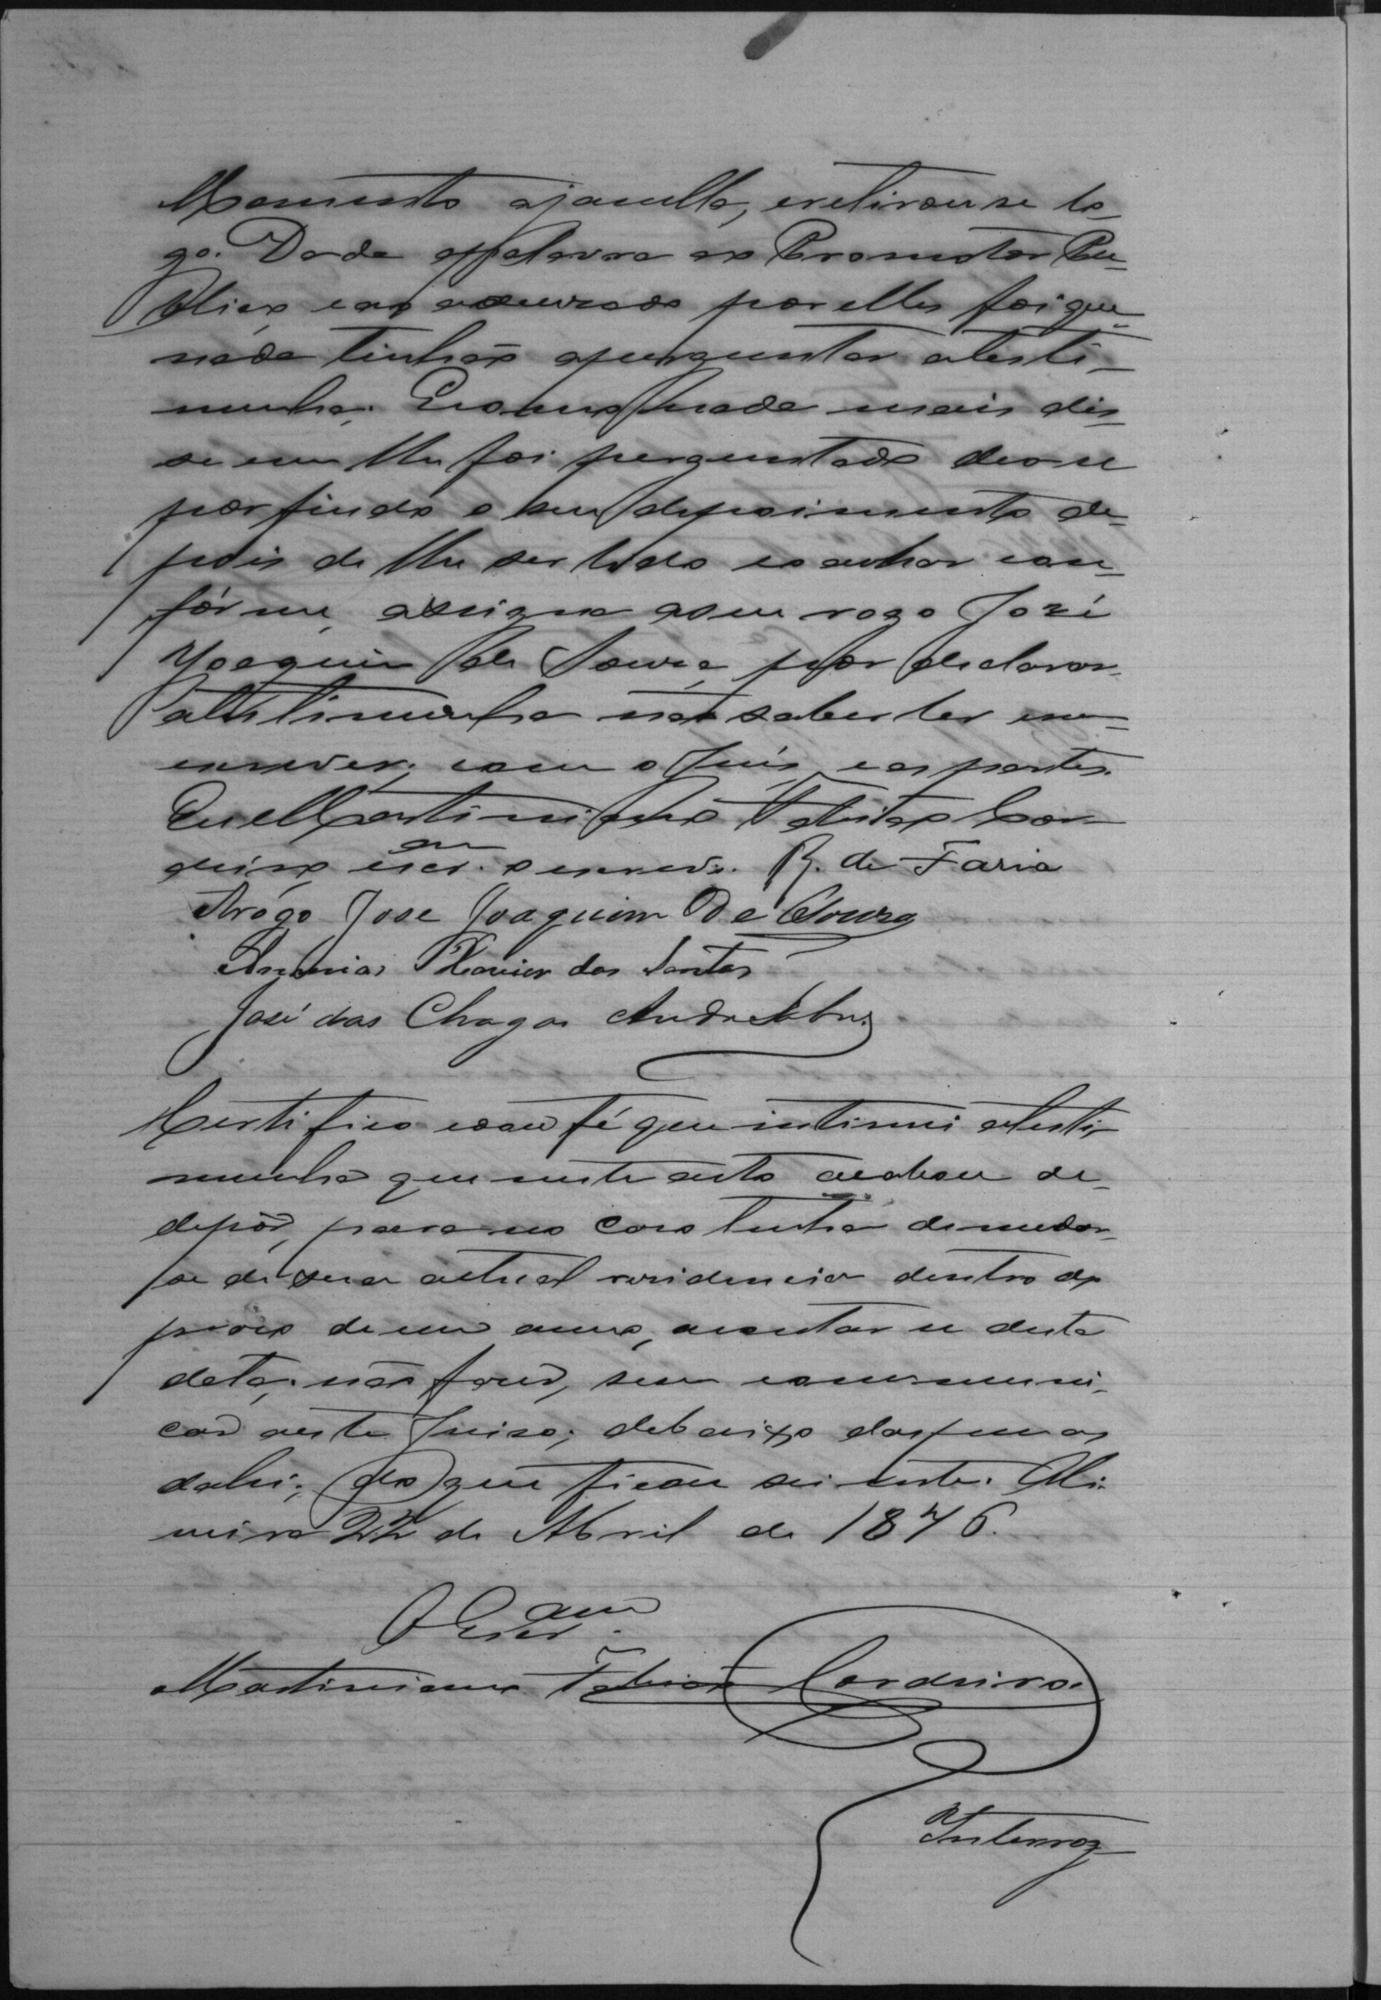 Momento ajanella, eretirouse lo
go. Dada apalavra ao Promotor Pu=
blico eao accusado por elles foi que
nada tinhão aperguntar atesti-
munha. Ecomo nada mais dis=
se nem lhe foi perguntado deo se
por findo o seu depoimento de=
pois de lhe ser lido eo achar con=
fórme, assigna aseu rogo José
Joaquim de Souza, por declarar
atestimunha não saber ler nem
escrever; com o Juis, eas partes.
Eu Martiniano Fabião Cor
deiro, escr.am o escrevi. R. de Faria
Arógo Jose Joaquim De Souza
Ananias Xavier dos Santos
José das Chagas Andre
Certifico edou fé que intimei atesti
munha que neste acto acabou de
depôr, para no caso tenha de mudar
se de sua actual residencia dentro do
praso de um anno, acontar se desta
data, não fazer, sem communi,
car aeste Juiso; debaixo das penas
da lei; do que ficou sciente.
22 de Abril de 1876.
O Escr.am
Martiniano Fabião Cordeiro.
Interrog